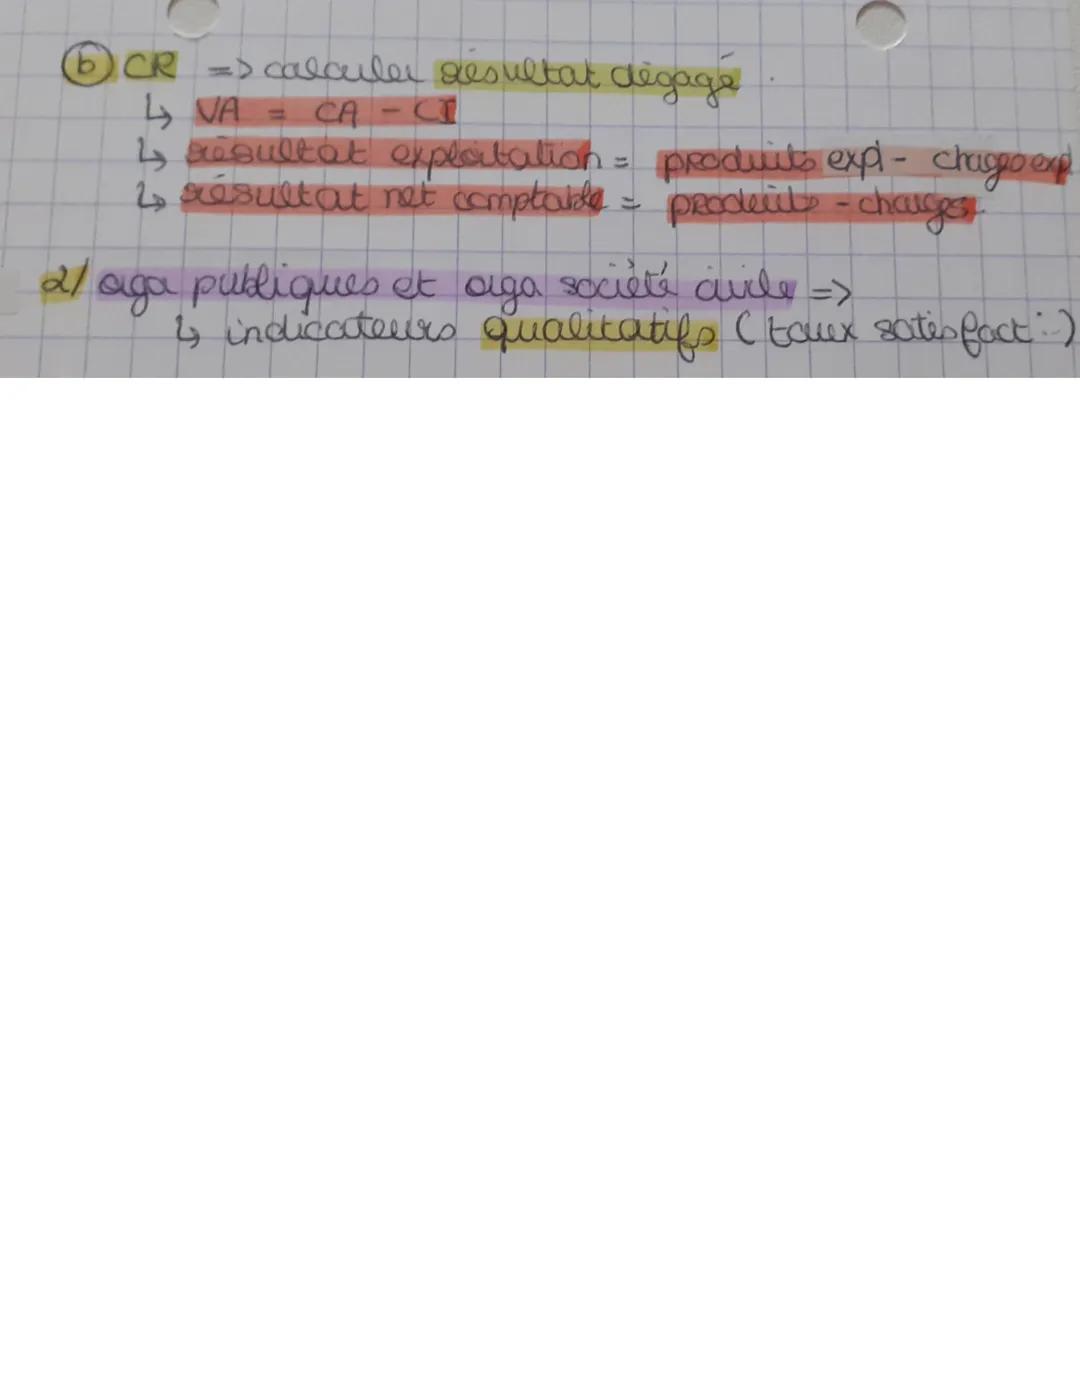 b CR => calculer résultat dégagé.
↳ VA = CA - CI
↳ résultat exploitation = produits expl - charges exp
↳ résultat net comptable = produits - charges.
2/ orga publiques et orga société civile =>
↳ indicateurs qualitatifs (taux satisfact°...)